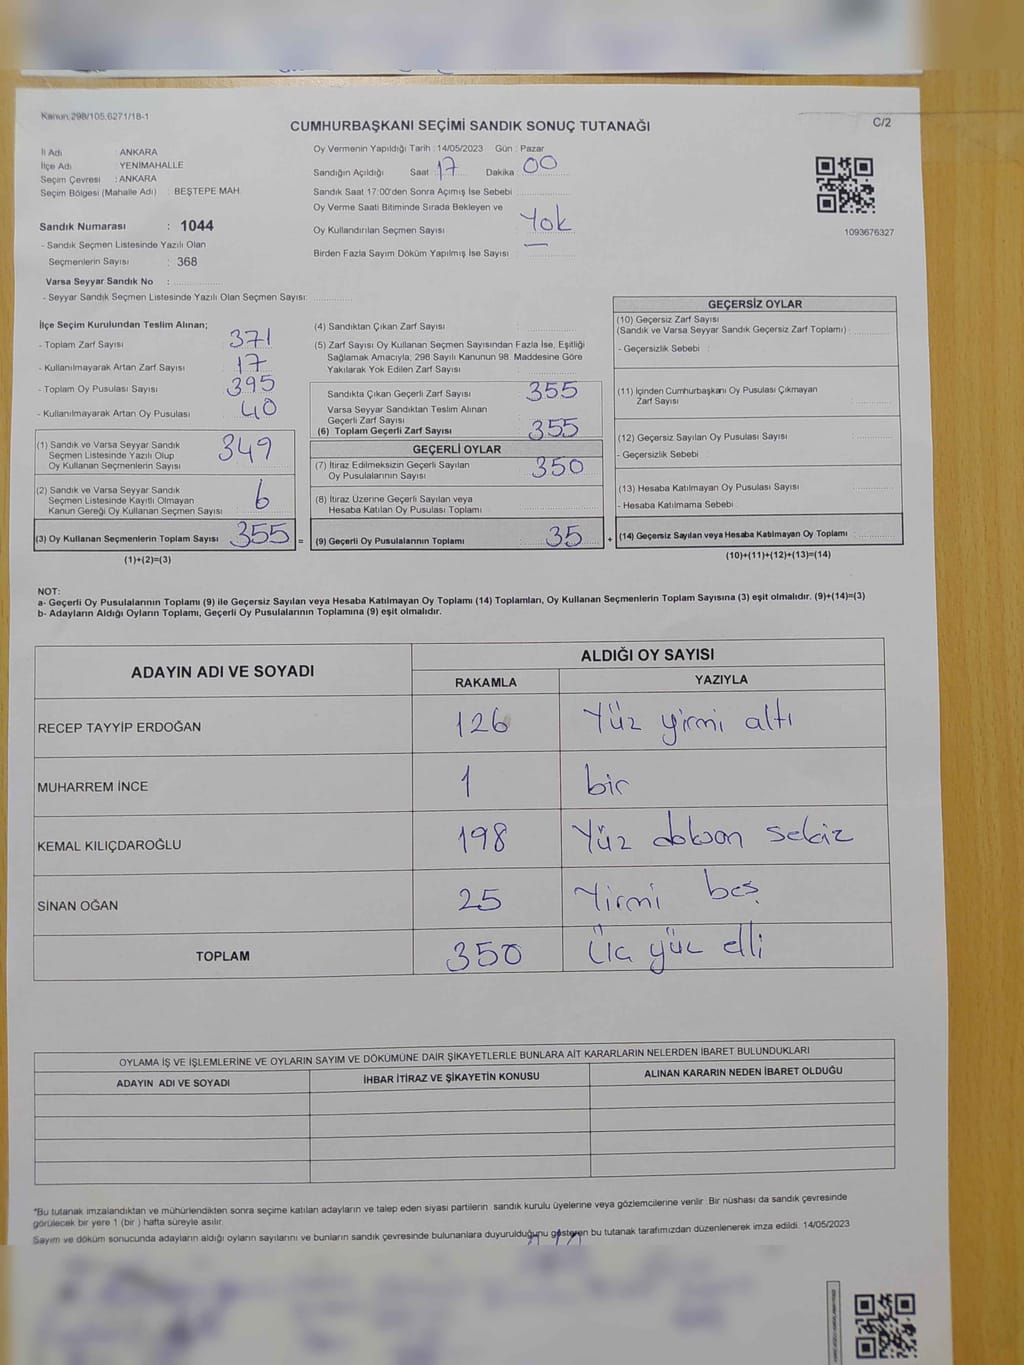 Kanun:298/105,6271/18-1
C/2
CUMHURBAŞKANI SEÇİMİ SANDIK SONUÇ TUTANAĞI
İl Adı : ANKARA
İlçe Adı : YENİMAHALLE
Seçim Çevresi : ANKARA
Seçim Bölgesi (Mahalle Adı) : BEŞTEPE MAH.
Oy Vermenin Yapıldığı Tarih : 14/05/2023 Gün : Pazar
Sandığın Açıldığı Saat 17 Dakika 00
Sandık Saat 17:00'den Sonra Açımış İse Sebebi
Oy Verme Saati Bitiminde Sırada Bekleyen ve
Oy Kullandırılan Seçmen Sayısı Yok
Birden Fazla Sayım Döküm Yapılmış İse Sayısı : —
1093676327
Sandık Numarası : 1044
- Sandık Seçmen Listesinde Yazılı Olan
Seçmenlerin Sayısı : 368
Varsa Seyyar Sandık No :
- Seyyar Sandık Seçmen Listesinde Yazılı Olan Seçmen Sayısı:
İlçe Seçim Kurulundan Teslim Alınan;
- Toplam Zarf Sayısı 371
- Kullanılmayarak Artan Zarf Sayısı 17
- Toplam Oy Pusulası Sayısı 395
- Kullanılmayarak Artan Oy Pusulası 40
(1) Sandık ve Varsa Seyyar Sandık
Seçmen Listesinde Yazılı Olup
Oy Kullanan Seçmenlerin Sayısı 349
(2) Sandık ve Varsa Seyyar Sandık
Seçmen Listesinde Kayıtlı Olmayan
Kanun Gereği Oy Kullanan Seçmen Sayısı 6
(3) Oy Kullanan Seçmenlerin Toplam Sayısı 355 =
(1)+(2)=(3)
(4) Sandıktan Çıkan Zarf Sayısı :
(5) Zarf Sayısı Oy Kullanan Seçmen Sayısından Fazla İse, Eşitliği
Sağlamak Amacıyla; 298 Sayılı Kanunun 98. Maddesine Göre
Yakılarak Yok Edilen Zarf Sayısı
Sandıkta Çıkan Geçerli Zarf Sayısı 355
Varsa Seyyar Sandıktan Teslim Alınan
Geçerli Zarf Sayısı
(6) Toplam Geçerli Zarf Sayısı 355
GEÇERLİ OYLAR
(7) İtiraz Edilmeksizin Geçerli Sayılan
Oy Pusulalarının Sayısı 350
(8) İtiraz Üzerine Geçerli Sayılan veya
Hesaba Katılan Oy Pusulası Toplamı
(9) Geçerli Oy Pusulalarının Toplamı 35 +
GEÇERSİZ OYLAR
(10) Geçersiz Zarf Sayısı
(Sandık ve Varsa Seyyar Sandık Geçersiz Zarf Toplamı) :
- Geçersizlik Sebebi :
(11) İçinden Cumhurbaşkanı Oy Pusulası Çıkmayan
Zarf Sayısı
(12) Geçersiz Sayılan Oy Pusulası Sayısı :
- Geçersizlik Sebebi :
(13) Hesaba Katılmayan Oy Pusulası Sayısı :
- Hesaba Katılmama Sebebi :
(14) Geçersiz Sayılan veya Hesaba Katılmayan Oy Toplamı
(10)+(11)+(12)+(13)=(14)
NOT:
a- Geçerli Oy Pusulalarının Toplamı (9) ile Geçersiz Sayılan veya Hesaba Katılmayan Oy Toplamı (14) Toplamları, Oy Kullanan Seçmenlerin Toplam Sayısına (3) eşit olmalıdır. (9)+(14)=(3)
b- Adayların Aldığı Oyların Toplamı, Geçerli Oy Pusulalarının Toplamına (9) eşit olmalıdır.
ADAYIN ADI VE SOYADI
ALDIĞI OY SAYISI
RAKAMLA YAZIYLA
RECEP TAYYİP ERDOĞAN 126 Yüz yirmi altı
MUHARREM İNCE 1 bir
KEMAL KILIÇDAROĞLU 198 Yüz doksan sekiz
SİNAN OĞAN 25 Yirmi beş
TOPLAM 350 Üç yüz elli
OYLAMA İŞ VE İŞLEMLERİNE VE OYLARIN SAYIM VE DÖKÜMÜNE DAİR ŞİKAYETLERLE BUNLARA AİT KARARLARIN NELERDEN İBARET BULUNDUKLARI
ADAYIN ADI VE SOYADI İHBAR İTİRAZ VE ŞİKAYETİN KONUSU ALINAN KARARIN NEDEN İBARET OLDUĞU
*Bu tutanak imzalandıktan ve mühürlendikten sonra seçime katılan adayların ve talep eden siyasi partilerin sandık kurulu üyelerine veya gözlemcilerine verilir. Bir nüshası da sandık çevresinde
görülecek bir yere 1 (bir ) hafta süreyle asılır.
Sayım ve döküm sonucunda adayların aldığı oyların sayılarını ve bunların sandık çevresinde bulunanlara duyurulduğunu gösteren bu tutanak tarafımızdan düzenlenerek imza edildi. 14/05/2023